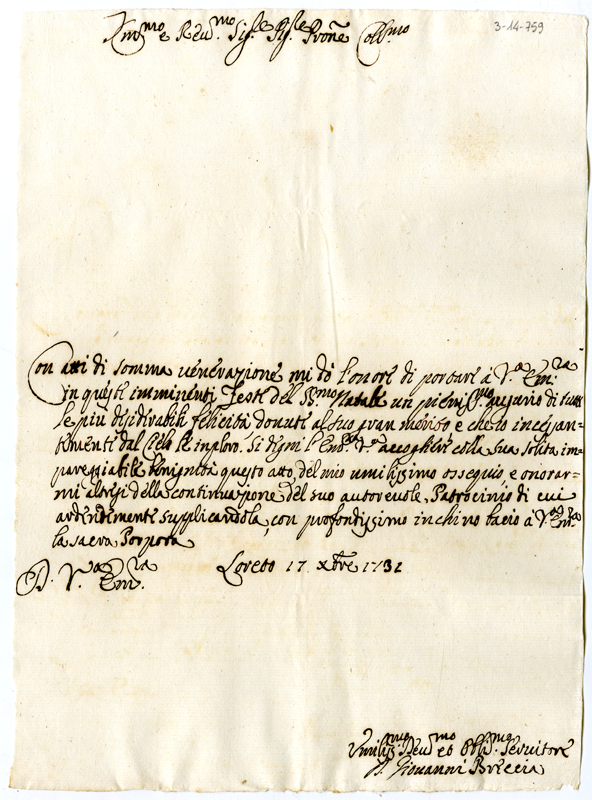 3-14-759
Em.mo e Rev.mo Sig.re Sig.re Prone Coll.mo
Con atti di somma venerazione mi dò l'onore di portare à V.a Em.ra
in queste imminenti Feste del S.mo Natale un pieniss.mo augurio di tutte
le più desiderabili felicità dovute al suo gran merito e che io incessan=
temente dal Cielo le imploro. Si degni l'Em.a V.a accogliere colla sua solita im=
pareggiabile benignità questo atto del mio umilissimo ossequio, e onorar=
mi altresi della continuazione del suo autorevole Patrocinio di cui
ardentemente supplicandola, con profondissimo inchino bacio a V.a Em.ra
la sacra Porpora
D. V.a Em.ra
Loreto 17 Xbre 1731
Umiliss.mo Dev.mo ed Obblig.mo Servitore
Giovanni Breccia